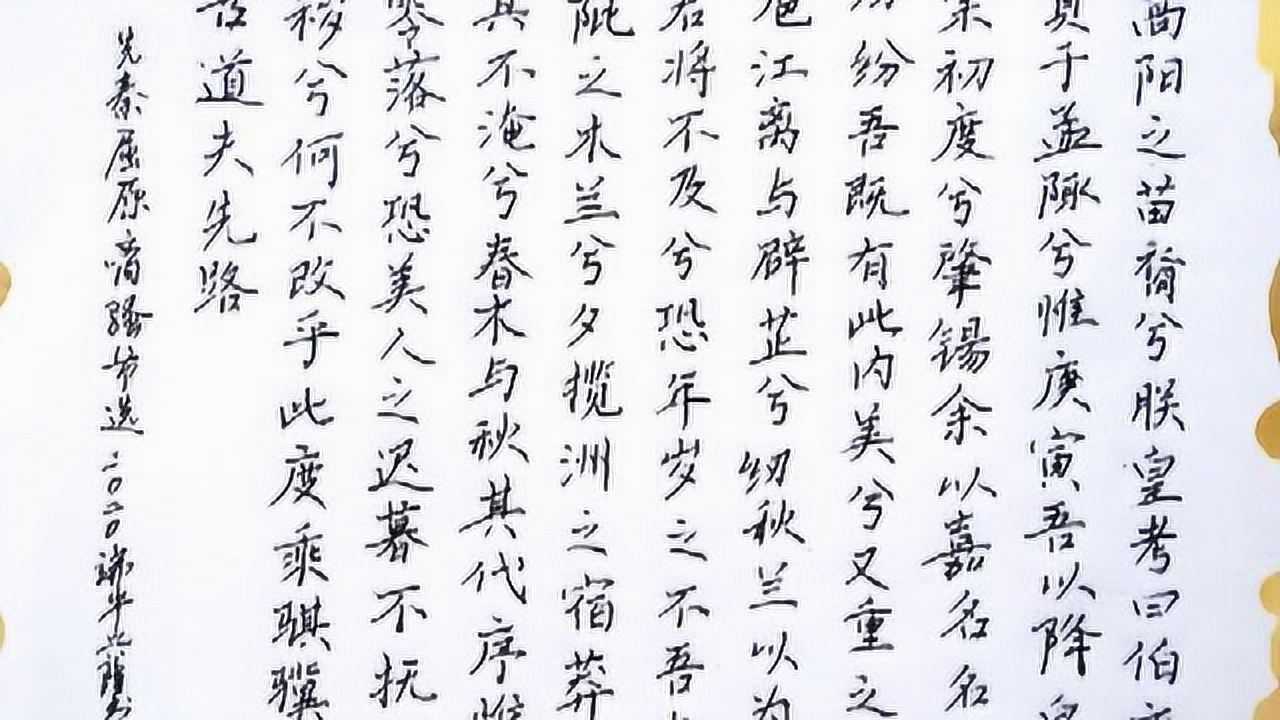 高阳之苗裔兮朕皇考曰伯
贞于孟陬兮惟庚寅吾以降
余初度兮肇锡余以嘉名名
纷吾既有此内美兮又重之
扈江离与辟芷兮纫秋兰以为
若将不及兮恐年岁之不吾
阰之木兰兮夕揽洲之宿莽
其不淹兮春木与秋其代序惟
零落兮恐美人之迟暮不抚
秽兮何不改乎此度乘骐骥
道夫先路
先秦屈原离骚节选二〇二〇端午